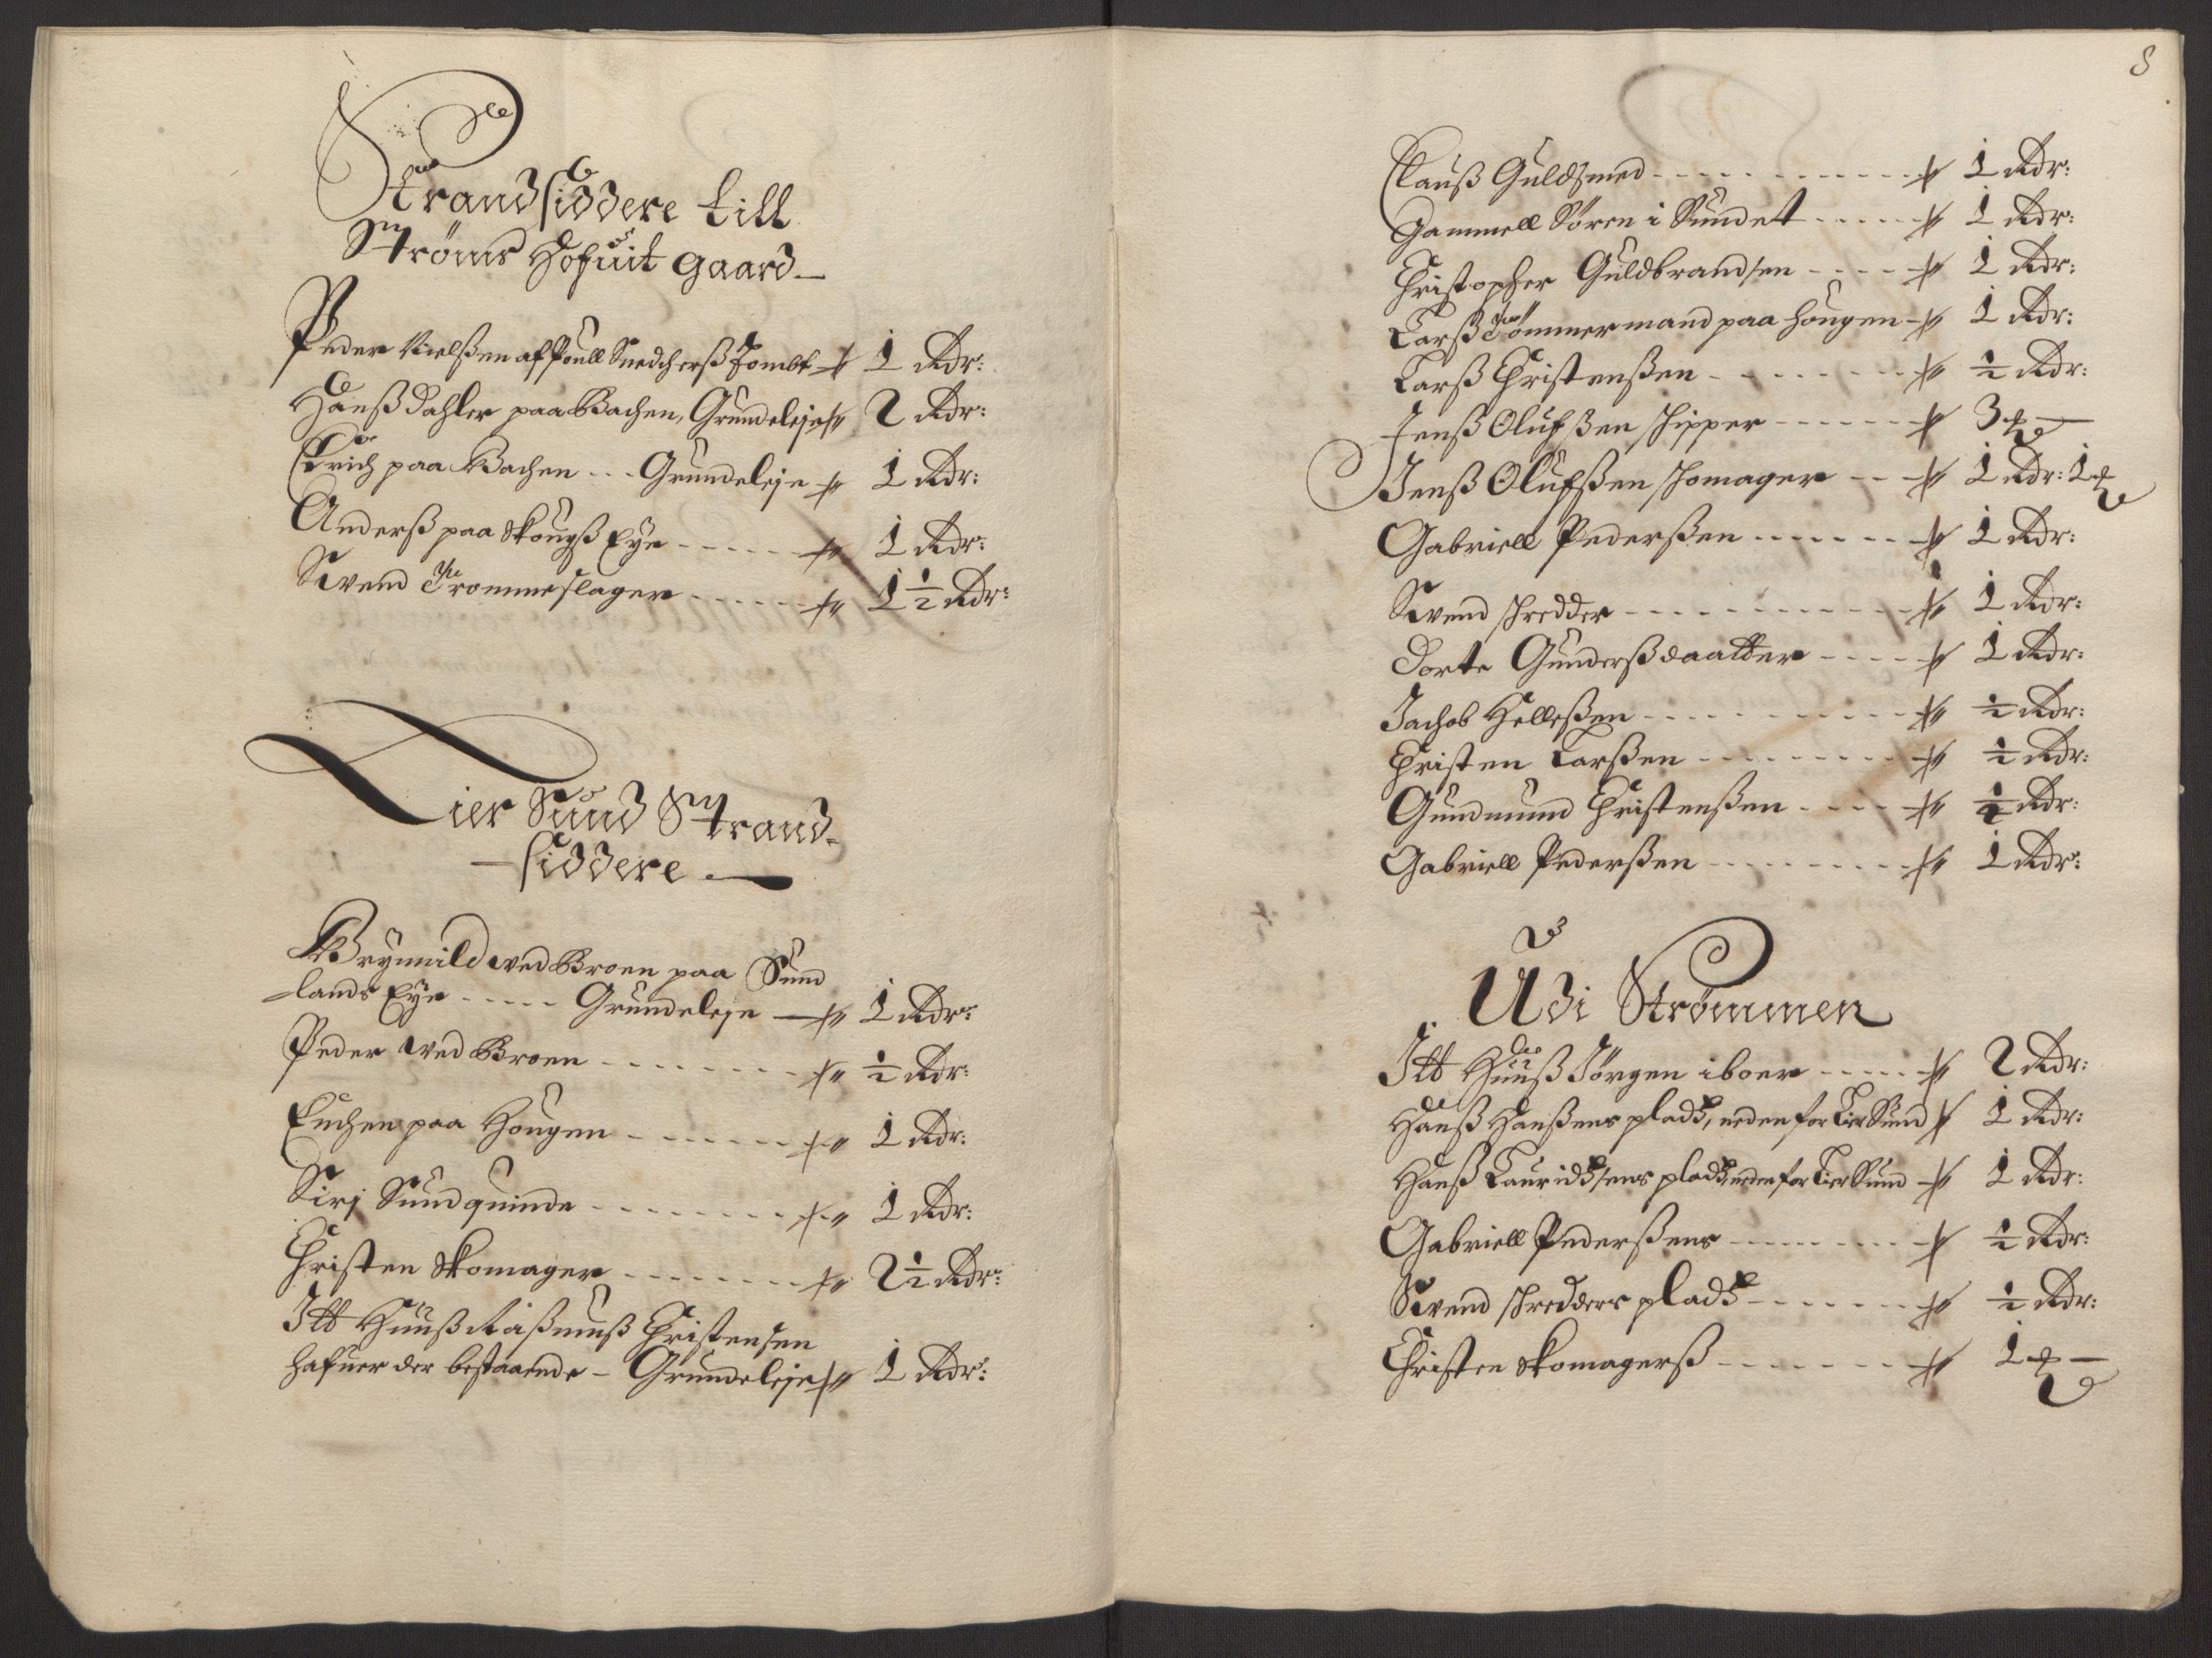 Strandsiddere till
Ströms Hofuit gaard
Peder Nielßen af Poull Snedcherß Tombt 1 Rdr:
Hanß Dahler paa Bachen, Grundeleje 2 Rdr:
Erich paa Bachen - - - Grundeleje 1 Rdr:
Anderß paa Skougß Eye - - - - - 1 Rdr:
Svend Trommeslager - - - - - - 1 1/2 Rdr:
Tier Sund Strand-
siddere
Brynnild ved Broen paa Sund
lands Eye - - - - - Grundeleje 1 Rdr:
Peder ved Broen - - - - - - - 1/2 Rdr:
paa Hougen - - - - - - - 1 Rdr:
Sirj Sundquinde - - - - - - - - 1 Rdr:
Christen Skomager - - - - - - - 2 1/2 Rdr:
Itt Huuß Raßmuß Christensen
hafuer der bestaaende - Grundeleje 1 Rdr:
8
Clauß Guldsmed - - - - - - - - - - 1 Rdr:
Gammell Sören i Sundet - - - - - 1 Rdr:
Christopher Guldbrandsen - - - - 1 Rdr:
Larß Tömmermand paa Hougen - 1 Rdr:
Larß Christenßen - - - - - - - - 1/2 Rdr:
Jenß Olufßen schipper - - - - - - 3
Jenß Olufßen schomager - - - 1 Rdr: 1
Gabriell Pederßen - - - - - - - 1 Rdr:
Svend schredder - - - - - - - - - - 1 Rdr:
Dorte Gunderßdaatter - - - - 1 Rdr:
Jachob Helleßen - - - - - - - - - 1/2 Rdr:
Christen Larßen - - - - - - - - - 1/2 Rdr:
Gundmund Christenßen - - - - 1/2 Rdr:
Gabriell Pederßen - - - - - - - - - 1 Rdr:
Udi Strömmen
Itt Huuß Jörgen iboer - - - - - 2 Rdr:
Hanß Hanßens pladtz, neden for Tier Sund 1 Rdr:
Hanß Lauridtzsens pladtz neden for Tier Sund 1 Rdr:
Gabriell Pederßens - - - - - - - - 1/2 Rdr:
Svend schredders pladtz - - - - - - 1/2 Rdr:
Christen Skomagerß - - - - - - - 1